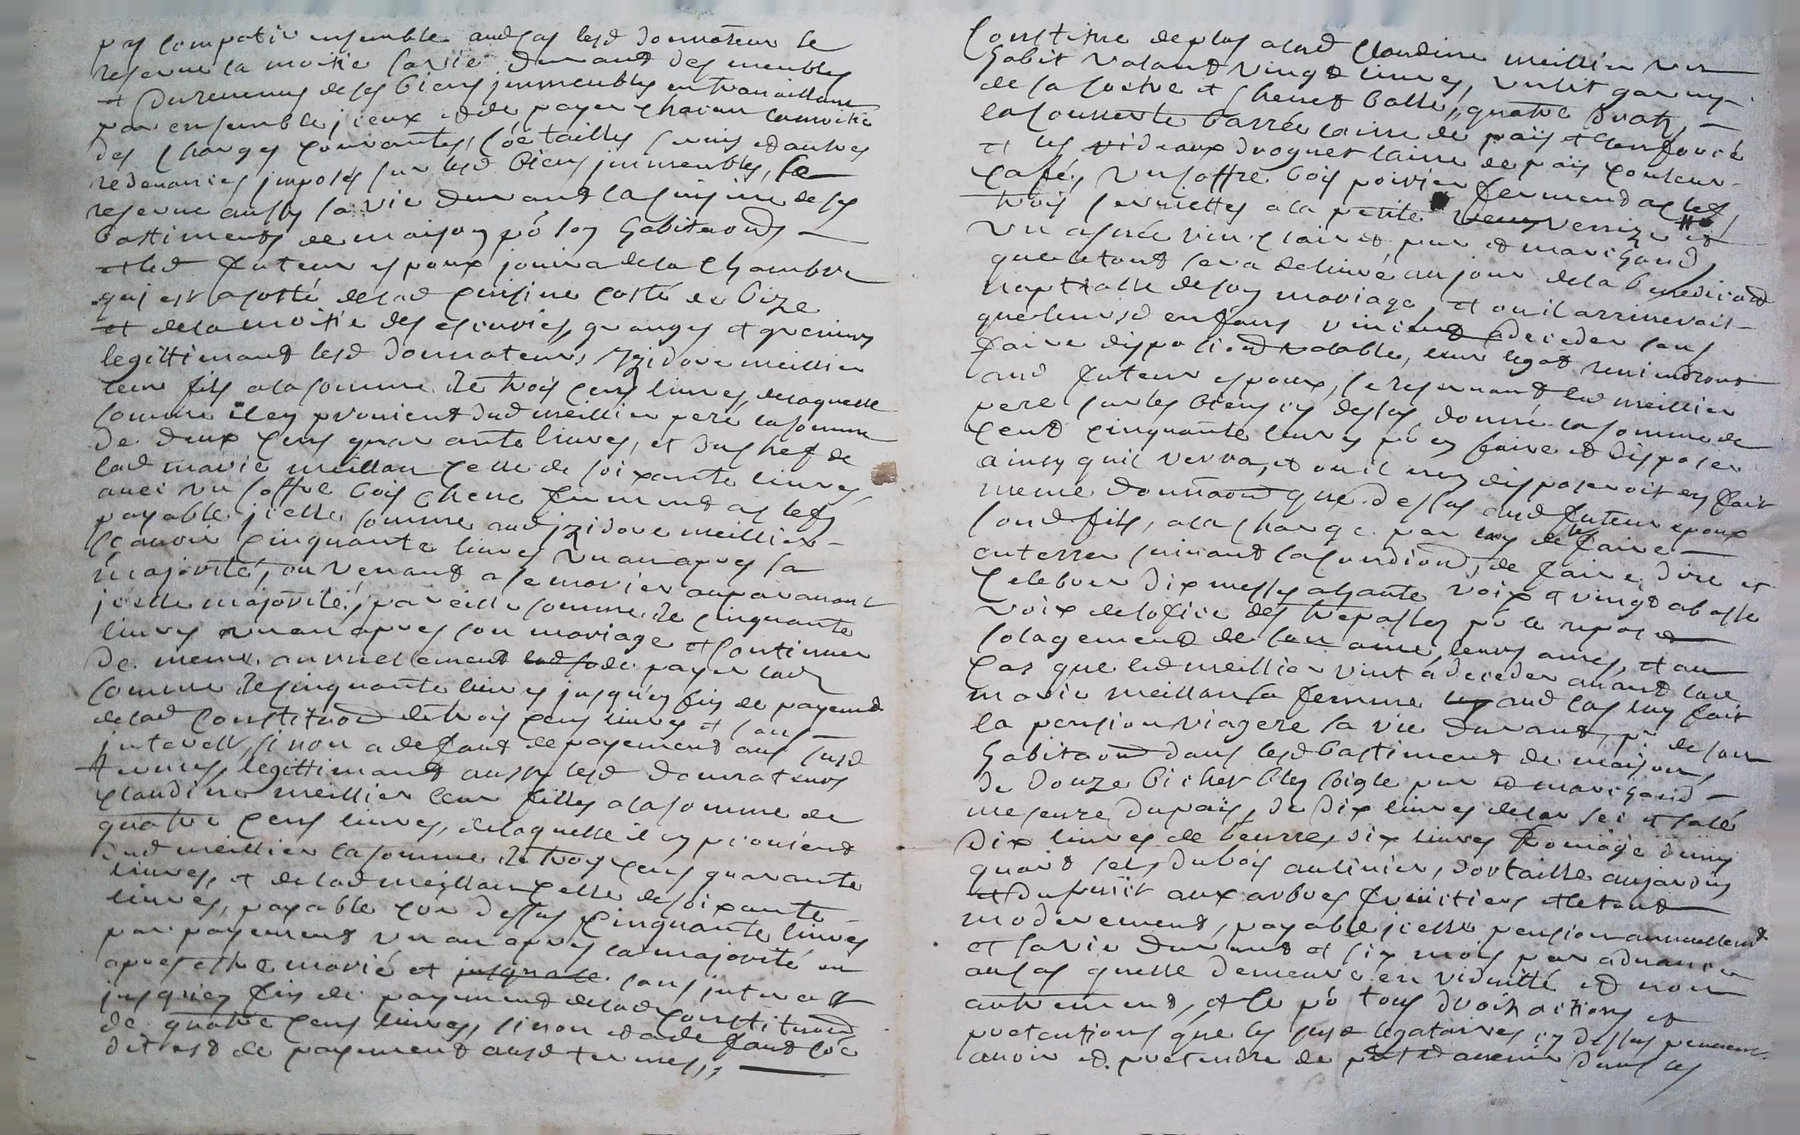 pas compatir ensemble audcas lesd donnateur se
reserve la moitié sa vie durant des meubles
et du revenus de ses biens jmmeubles en travaillant
par ensemble jceux et de payer chacun la moitié
des charges courantes, coe tailles servis et autres
redevances jmposés sur lesd biens jmmeubles, se
reserve aussy sa vie durant la cuisine de ses
battiments de maison po son habitaon
et led futeur epoux jouira de la chambre
qui est a costé de lad cuisine costé de bize
et de la moitié des escuries, granges et greniers
legittimant lesd donnateurs jzidore meillier
leur fils a la somme de trois cens livres, de laquelle
somme il en provient dud meillier pere la somme
de deux cens quarante livres, et du chef de
lad marie meillan celle de soixante livres,
avec un coffre bois chene fermant a clefs
payable jcelle somme aud jzidore meillier
scavoir cinquante livres un an apres sa
majorité, ou venant a se marier auparavant
jcelle majorité, pareille somme de cinquante
livres un an apres son mariage et continuer
de meme annuellement de payer lad
somme de cinquante livres jusqu'en fin de payement
de lad constituon de trois cens livres et sans
jnterest, sinon a defaut de payement aux susd
termes, legittimant aussy lesd donnateurs
claudine meillier leur fille a la somme de
quatre cens livres, de laquelle il en provient
dud meillier la somme de trois cens quarante
livres, et de lad meillan celle de soixante
livres, payable coe dessus cinquante livres
par payement un an apres sa majorité ou
apres estre marié et jusquace sans jnterest
jusqu'en fin de payement de lad constituon
de quatre cens livres, sinon et a defaut coe
dit est de payement ausd termes,,
Constitue de plus a lad claudine meillier un
habit valant vingt livres, un lit garny
de sa coetre et chevet balle, quatre draps,
la couverte barrée laine de païs et
et les rideaux droguet laine de païs couleur
café, un coffre bois poirier fermant a clef,
trois serviettes a la petite venise et
un asnée vin clairet pur et marchand,
quel tout sera delivré au jour de la benediction
nuptialle de son mariage, et ou il arriverait
que leursd enfans vinssent a deceder sans
faire disposition valable, leur legat reviendront
aud futeur espoux, se reservant led meillier
pere sur les biens cy dessus donné la somme de
cent cinquante livres po en faire et disposer
ainsy quil verra, et ou il n'en disposeroit en fait
meme donnaon que dessus aud futeur epoux
sond fils, a la charge par luy de le faire
enterrer suivant sa condition, de faire dire et
celebrer dix messes a haute voix et vingt a basse
voix de lofice des trepassez po le repos et
solagement de son ame, leurs ames, et au
cas que led meillier vint a deceder avant lad
marie meillan sa femme aud cas luy fait
la pension viagere sa vie durant, de son
habitaon dans lesd bastiment de maison,
de douze bichet bled seigle pur et marchand
mesure du païs, de dix livres de lar sec et salé
dix livres de beurre, dix livres fromage demy
quart sel, du bois au linier, dortaille au jardin
et du fruit aux arbres fruitiers et le tout
moderement, payable jcelle pension annuellemt
et sa vie durant et six mois par advance
ausas quelle demeure en viduitté et non
autrement, et ce po tous droits actions et
pretentions que les susd legataires cy dessus peuvent
avoir et pretendre de pnt et avenir dans les